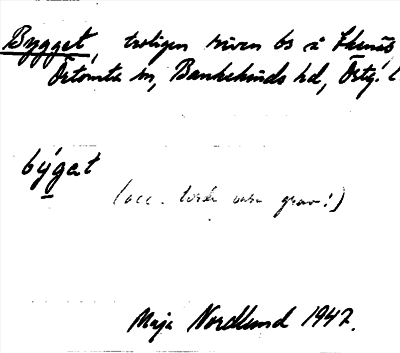 Bygget, troligen riven bs å Ekenäs
Örtomta sn, Bankekinds hd, Östg. l
bý̲gat
(acc. torde vara grav!)
Maja Nordlund 1942.